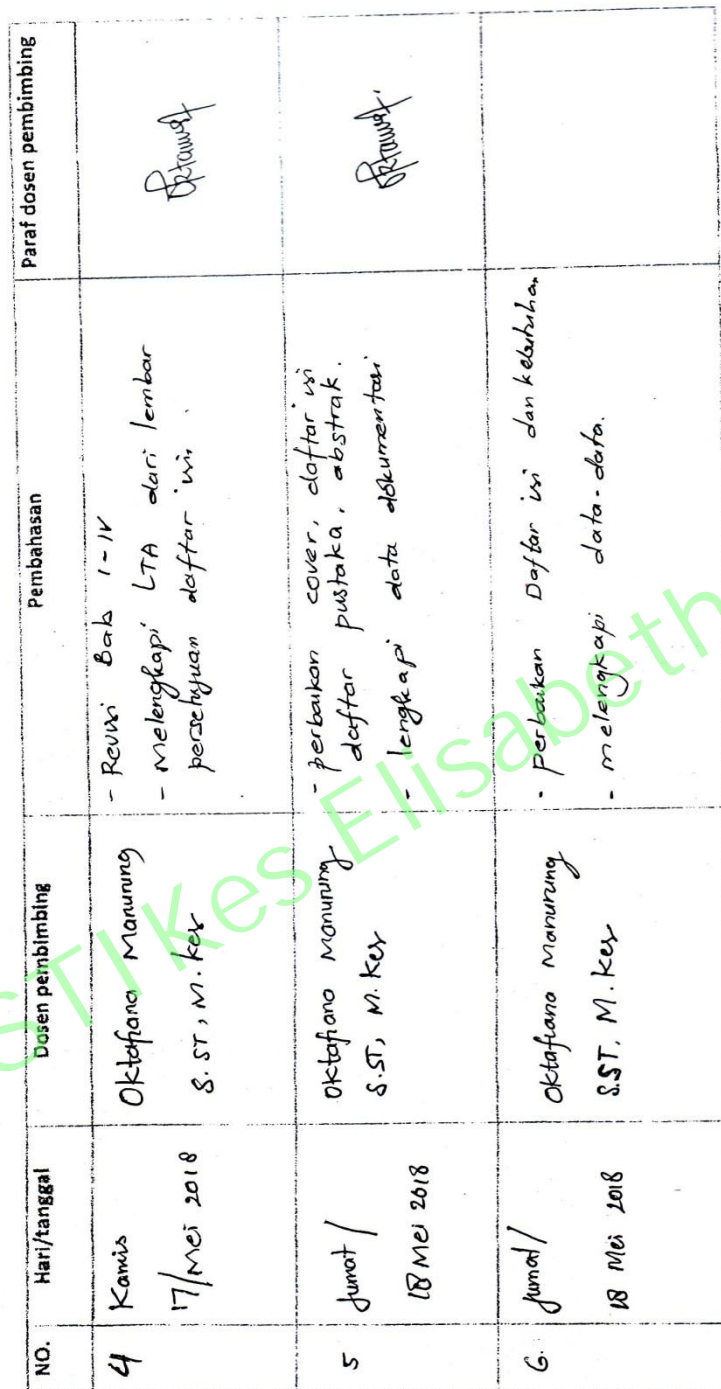 NO.
Hari/tanggal
Dosen pembimbing
Pembahasan
Paraf dosen pembimbing
4
Kamis
17/Mei 2018
Oktafiana Manurung
S.ST, M.Kes
- Revisi Bab I-IV
- Melengkapi LTA dari lembar
persetujuan daftar isi.
5
Jumat /
18 Mei 2018
Oktafiana Manurung
S.ST, M.Kes
- perbaikan cover, daftar isi
daftar pustaka, abstrak.
- lengkapi data dokumentasi
6.
Jumat/
18 Mei 2018
Oktafiana Manurung
S.ST. M.Kes
- perbaikan Daftar isi dan
- melengkapi data-data.
STIKes Elisabeth